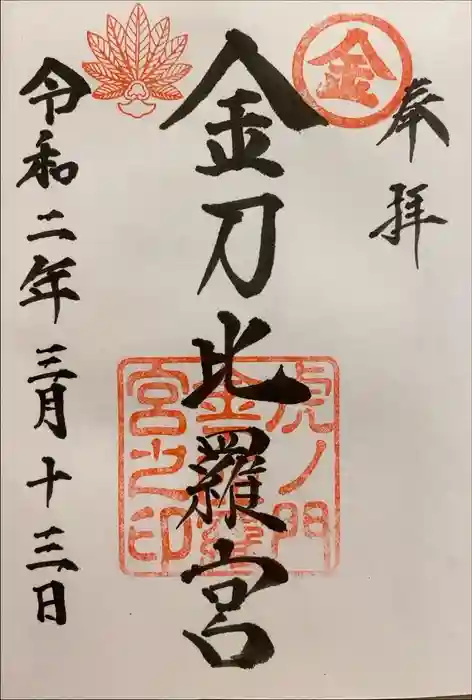 奉拝
金
金刀比羅宮
虎ノ門
金
宮之印
令和二年三月十三日